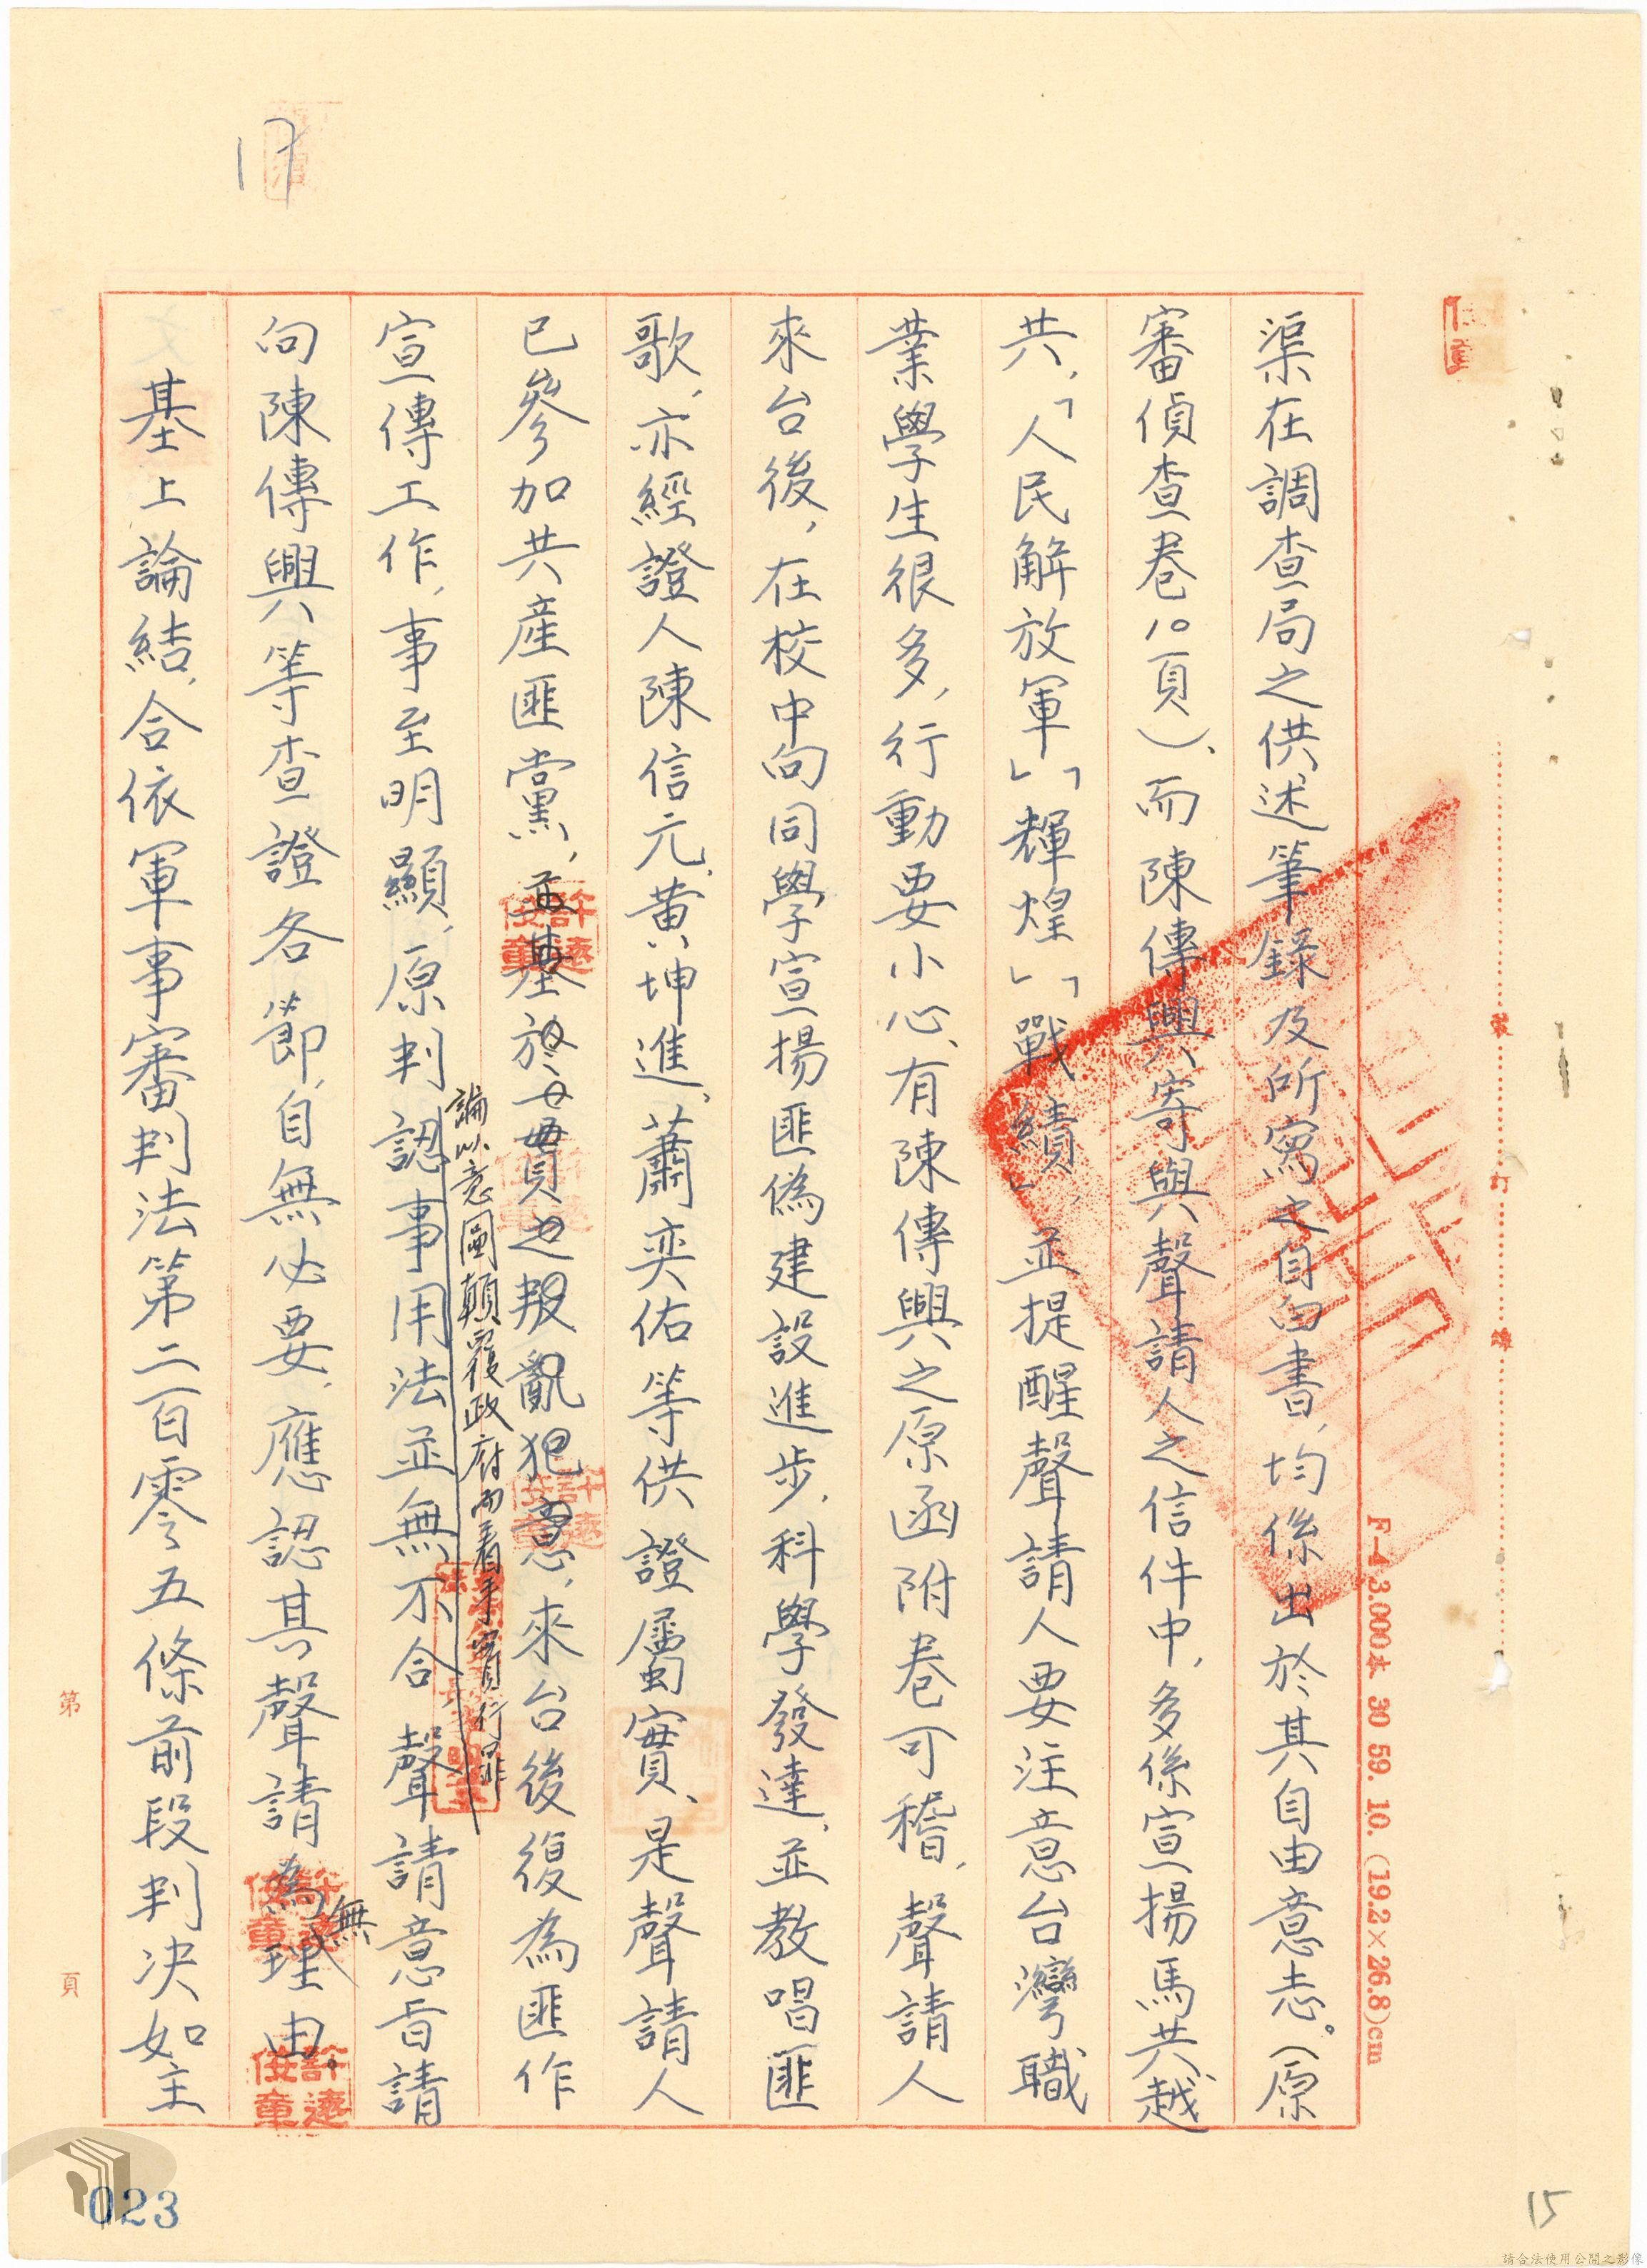 渠在調查局之供述筆錄及所寫之自白書，均係出於其自由意志。（原
審偵查卷10頁）、而陳傳興寄與聲請人之信件中，多係宣揚馬共、越
共，「人民解放軍」「輝煌」「戰績」，並提醒聲請人要注意台灣職
業學生很多，行動要小心、有陳傳興之原函附卷可稽，聲請人
來台後，在校中向同學宣揚匪偽建設進步，科學發達，並教唱匪
歌，亦經證人陳信元、黃坤進、蕭奕佑等供證屬實、是聲請人
已參加共產匪黨，並基於一貫之叛亂犯意，來台後復為匪作
論以意圖顛覆政府而着手實行罪
宣傳工作，事至明顯，原判認事用法並無不合，聲請意旨請
向陳傳興等查證各節，自無必要，應認其聲請為無理由。
基上論結，合依軍事審判法第二百零五條前段判決如主
17
許遠俊章
許遠俊章
許遠俊章
許遠俊章
裝
訂
線
F-4 3.000本 30 59. 10. (19.2×26.8)cm
第
頁
023
15
請合法使用公開之影像